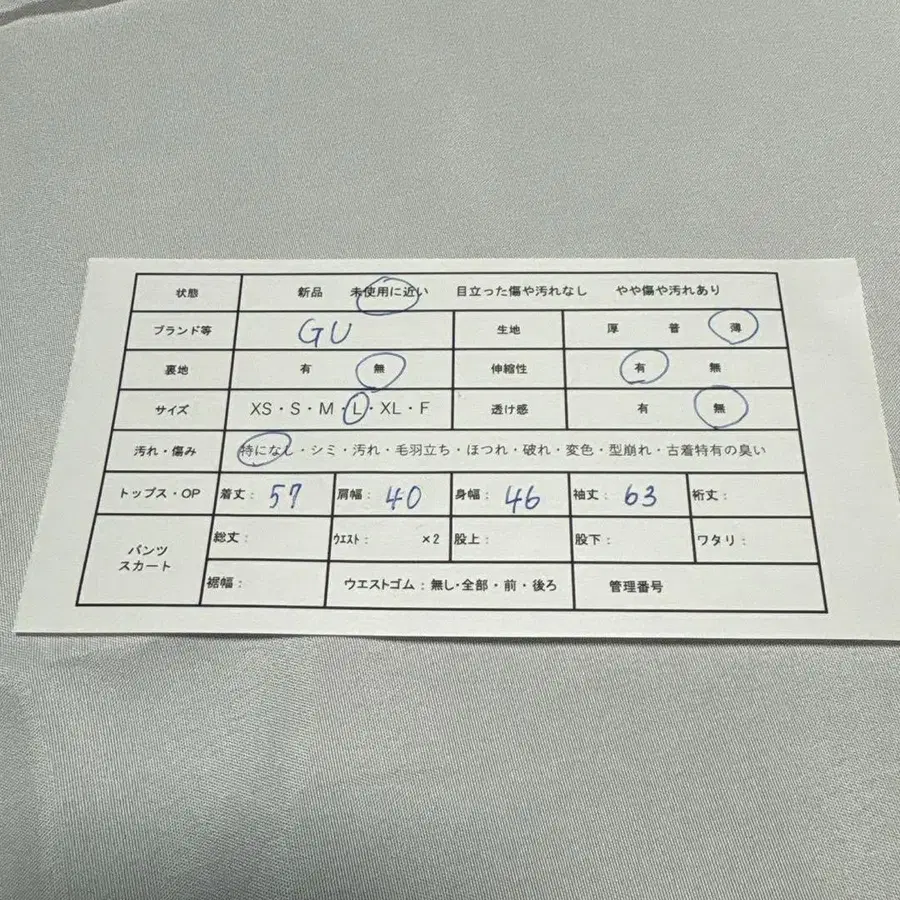 状態 新品 未使用に近い 目立った傷や汚れなし やや傷や汚れあり
ブランド等 GU 生地 厚 普 薄
裏地 有 無 伸縮性 有 無
サイズ XS・S・M・L・XL・F 透け感 有 無
汚れ・傷み 特になし・シミ・汚れ・毛羽立ち・ほつれ・破れ・変色・型崩れ・古着特有の臭い
トップス・OP 着丈: 57 肩幅: 40 身幅: 46 袖丈: 63 裄丈:
パンツ スカート 総丈: ウエスト: ×2 股上: 股下: ワタリ:
裾幅: ウエストゴム:無し・全部・前・後ろ 管理番号